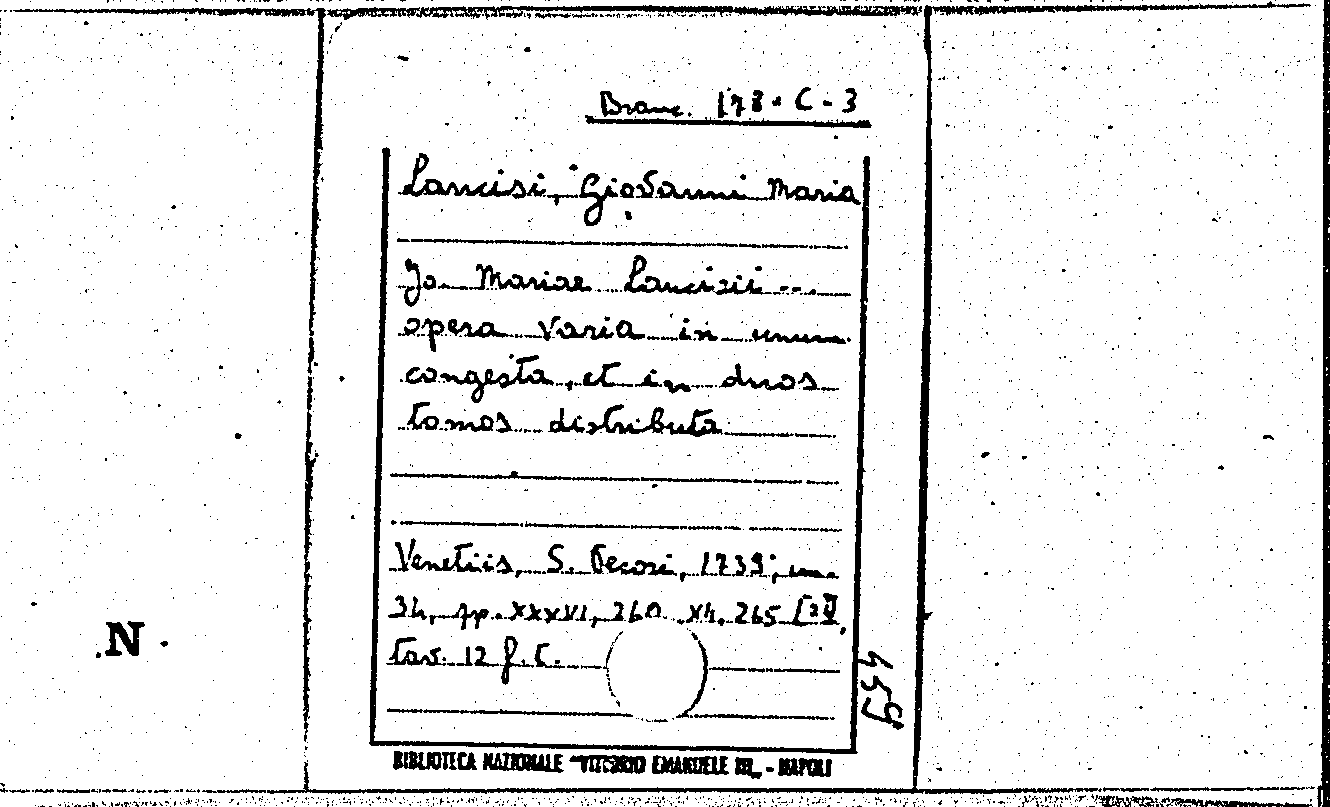 Branc. 178 - C - 3
Lancisi, Giovanni Maria
Jo. Mariae Lancisii ...
opera varia in unum
congesta, et in duos
tomos distributa
Venetiis, S. Pecori, 1739, in-
34, pp. XXXVI, 260 XII, 265
tav. 12 f.t.
459
N
BIBLIOTECA NAZIONALE "VITTORIO EMANUELE III„ - NAPOLI